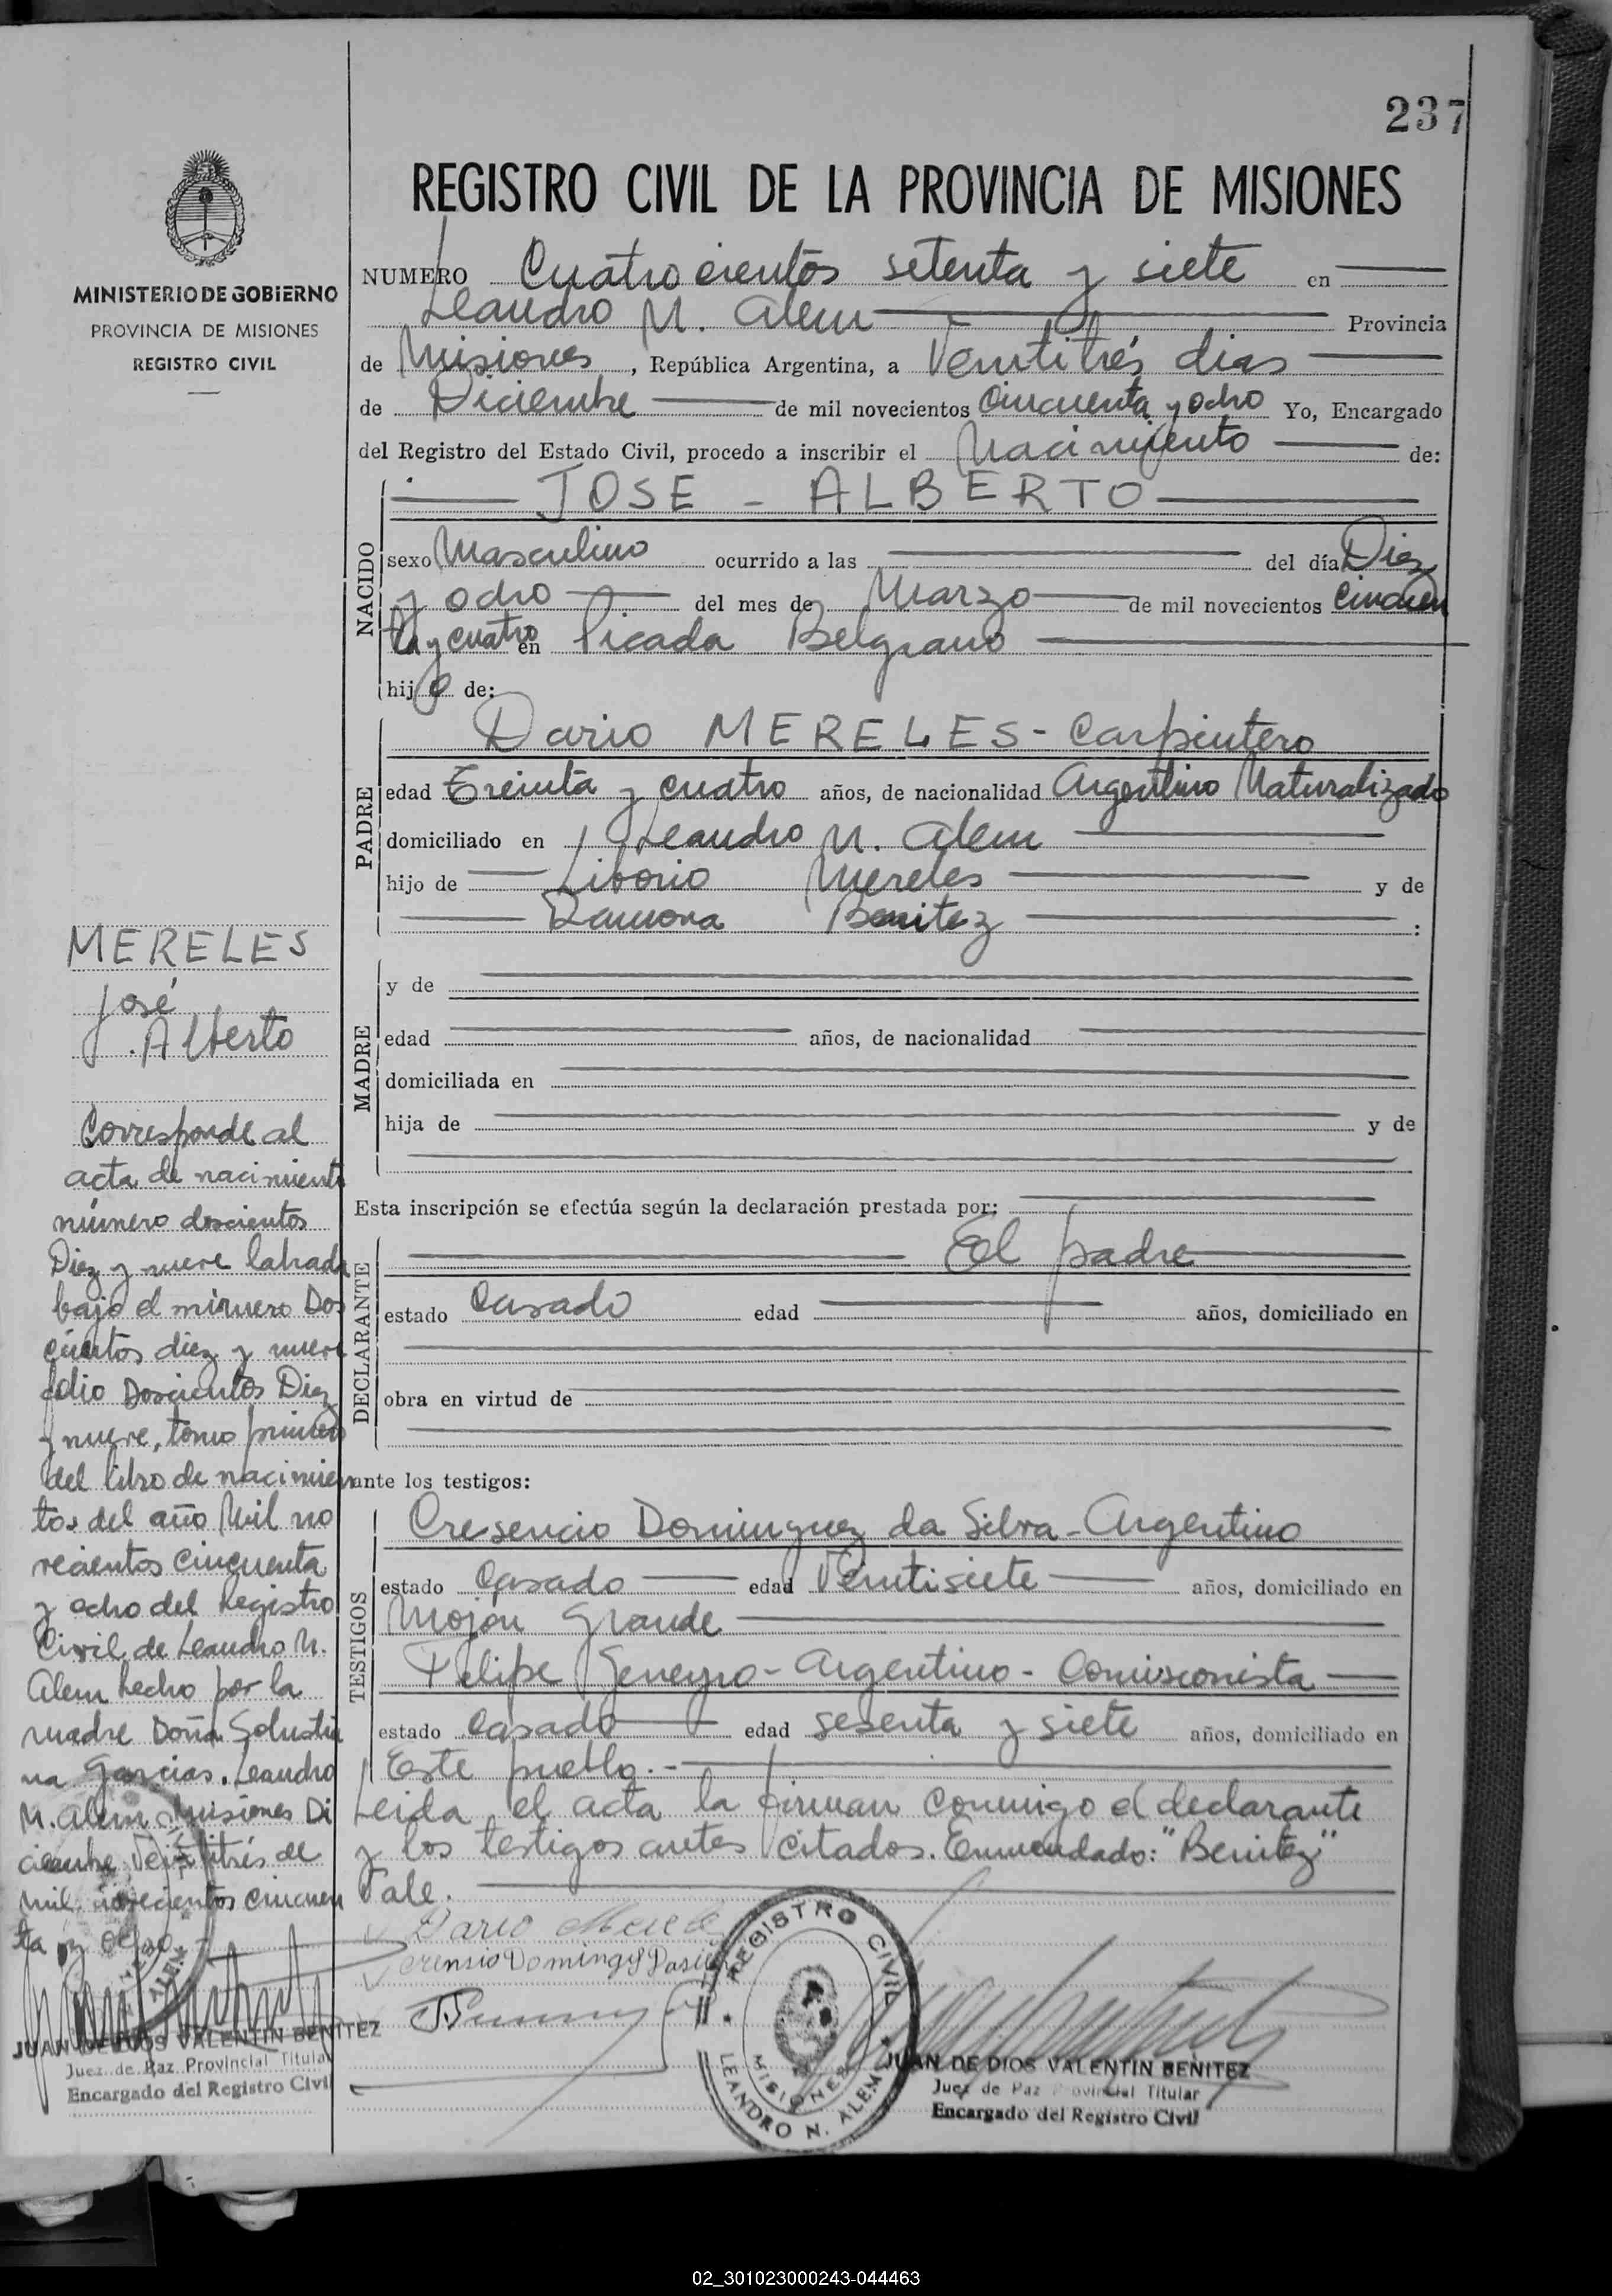 237
REGISTRO CIVIL DE LA PROVINCIA DE MISIONES
MINISTERIO DE GOBIERNO
PROVINCIA DE MISIONES
REGISTRO CIVIL
NUMERO Cuatrocientos setenta y siete en
Leandro N. Alem Provincia
de Misiones, República Argentina, a Veintitrés dias
de Diciembre de mil novecientos Cincuenta y ocho Yo, Encargado
del Registro del Estado Civil, procedo a inscribir el Nacimiento de:
JOSE - ALBERTO
NACIDO
sexo Masculino ocurrido a las del día Diez
y ocho del mes de Marzo de mil novecientos Cincuen
ta y cuatro en Picada Belgrano
hijo de:
PADRE
Dario MERELES - Carpintero
edad Treinta y cuatro años, de nacionalidad Argentino Naturalizado
domiciliado en Leandro N. Alem
hijo de Liborio Mereles y de
Ramona Benitez :
MADRE
y de
edad años, de nacionalidad
domiciliada en
hija de y de
Esta inscripción se efectúa según la declaración prestada por:
DECLARANTE
El padre
estado Casado edad años, domiciliado en
obra en virtud de
ante los testigos:
TESTIGOS
Cresencio Dominguez da Silva - Argentino
estado Casado edad Veintisiete años, domiciliado en
Mojón Grande
Felipe - Argentino - Comisionista
estado Casado edad sesenta y siete años, domiciliado en
Este pueblo. -
Leida el acta la firman conmigo el declarante
y los testigos antes citados. Enmendado: "Benitez"
Vale.
MERELES
José
Alberto
Corresponde al
acta de nacimiento
número doscientos
Diez y nueve labrada
bajo el número Dos
cientos diez y nueve
folio Doscientos Diez
y nueve, tomo primero
del libro de nacimien
tos del año Mil no
vecientos cincuenta
y ocho del Registro
Civil de Leandro N.
Alem hecho por la
madre Doña Solustia
na Garcias. Leandro
N. Alem Misiones Di
ciembre Veintitrés de
mil novecientos cincuen
ta y ocho
JUAN DE DIOS VALENTIN BENITEZ
Juez de Paz Provincial Titular
Encargado del Registro Civil
REGISTRO CIVIL
MISIONES
LEANDRO N. ALEM
JUAN DE DIOS VALENTIN BENITEZ
Juez de Paz Provincial Titular
Encargado del Registro Civil
02_301023000243-044463